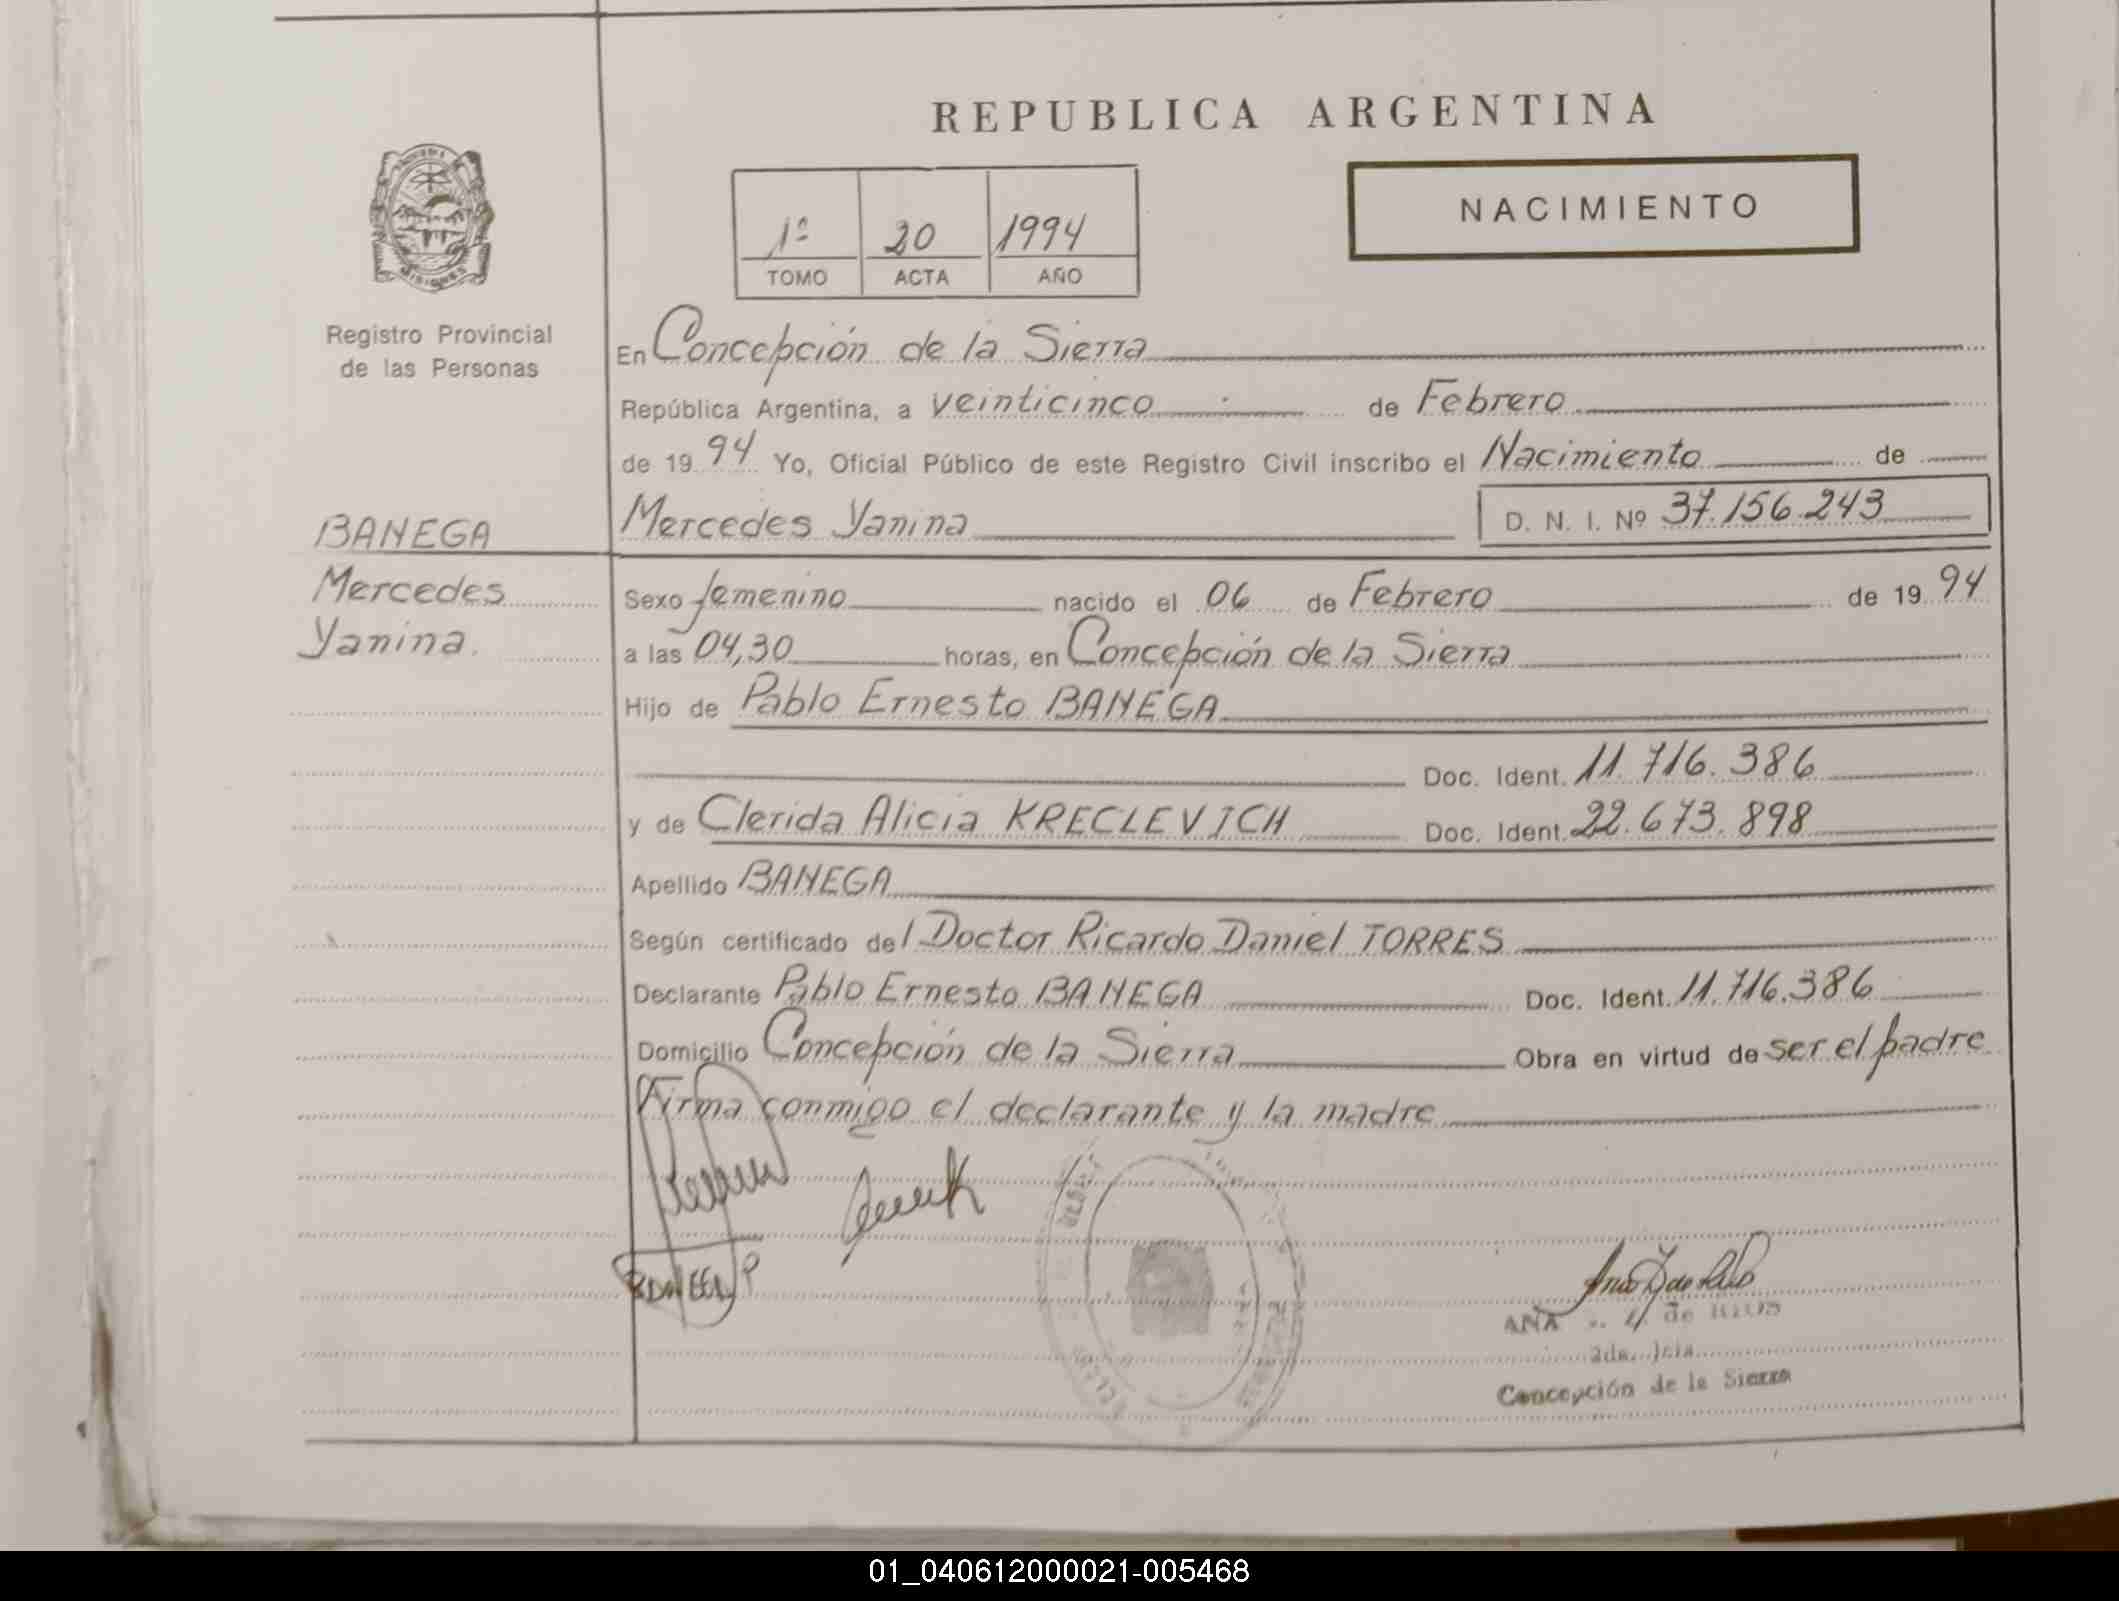 REPUBLICA ARGENTINA
1º 20 1994
TOMO ACTA AÑO
NACIMIENTO
MISIONES
Registro Provincial
de las Personas
En Concepción de la Sierra
República Argentina, a veinticinco de Febrero
de 19 94 Yo, Oficial Público de este Registro Civil inscribo el Nacimiento de
Mercedes Yanina D. N. I. Nº 37.156.243
BANEGA
Mercedes
Yanina.
Sexo femenino nacido el 06 de Febrero de 19 94
a las 04,30 horas, en Concepción de la Sierra
Hijo de Pablo Ernesto BANEGA
Doc. Ident. 11.716.386
y de Clerida Alicia KRECLEVICH Doc. Ident. 22.673.898
Apellido BANEGA
Según certificado del Doctor Ricardo Daniel TORRES
Declarante Pablo Ernesto BANEGA Doc. Ident. 11.716.386
Domicilio Concepción de la Sierra Obra en virtud de ser el padre
Firma conmigo el declarante y la madre
ANA de RIOS
Concepción de la Sierra
01_040612000021-005468